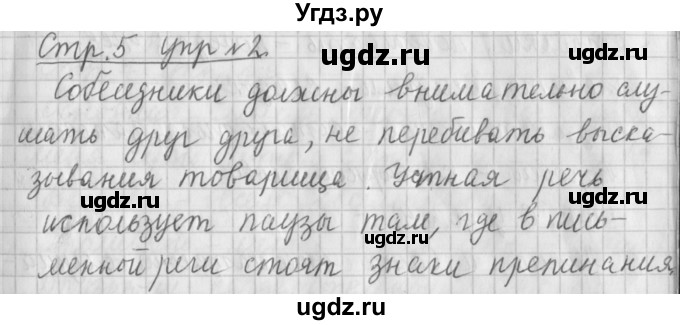 Угдз.ру
Стр. 5 упр № 2.
ugdz.ru ugdz.ru
Собеседники должны внимательно слу-
шать друг друга, не перебивать выска-
ugdz.ru
зывания товарища. Устная речь
ugdz.ru
использует паузы там, где в пись-
ugdz.ru
менной речи стоят знаки препинания,
ugdz.ru ugdz.ru